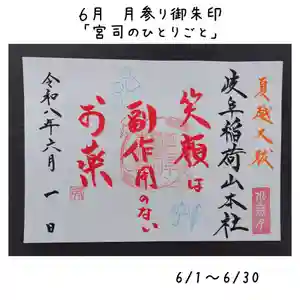 6月 月参り御朱印
「宮司のひとりごと」
夏越大祓
岐阜稲荷山本社
笑顔は
副作用のない
お薬
令和八年六月一日
6/1〜6/30